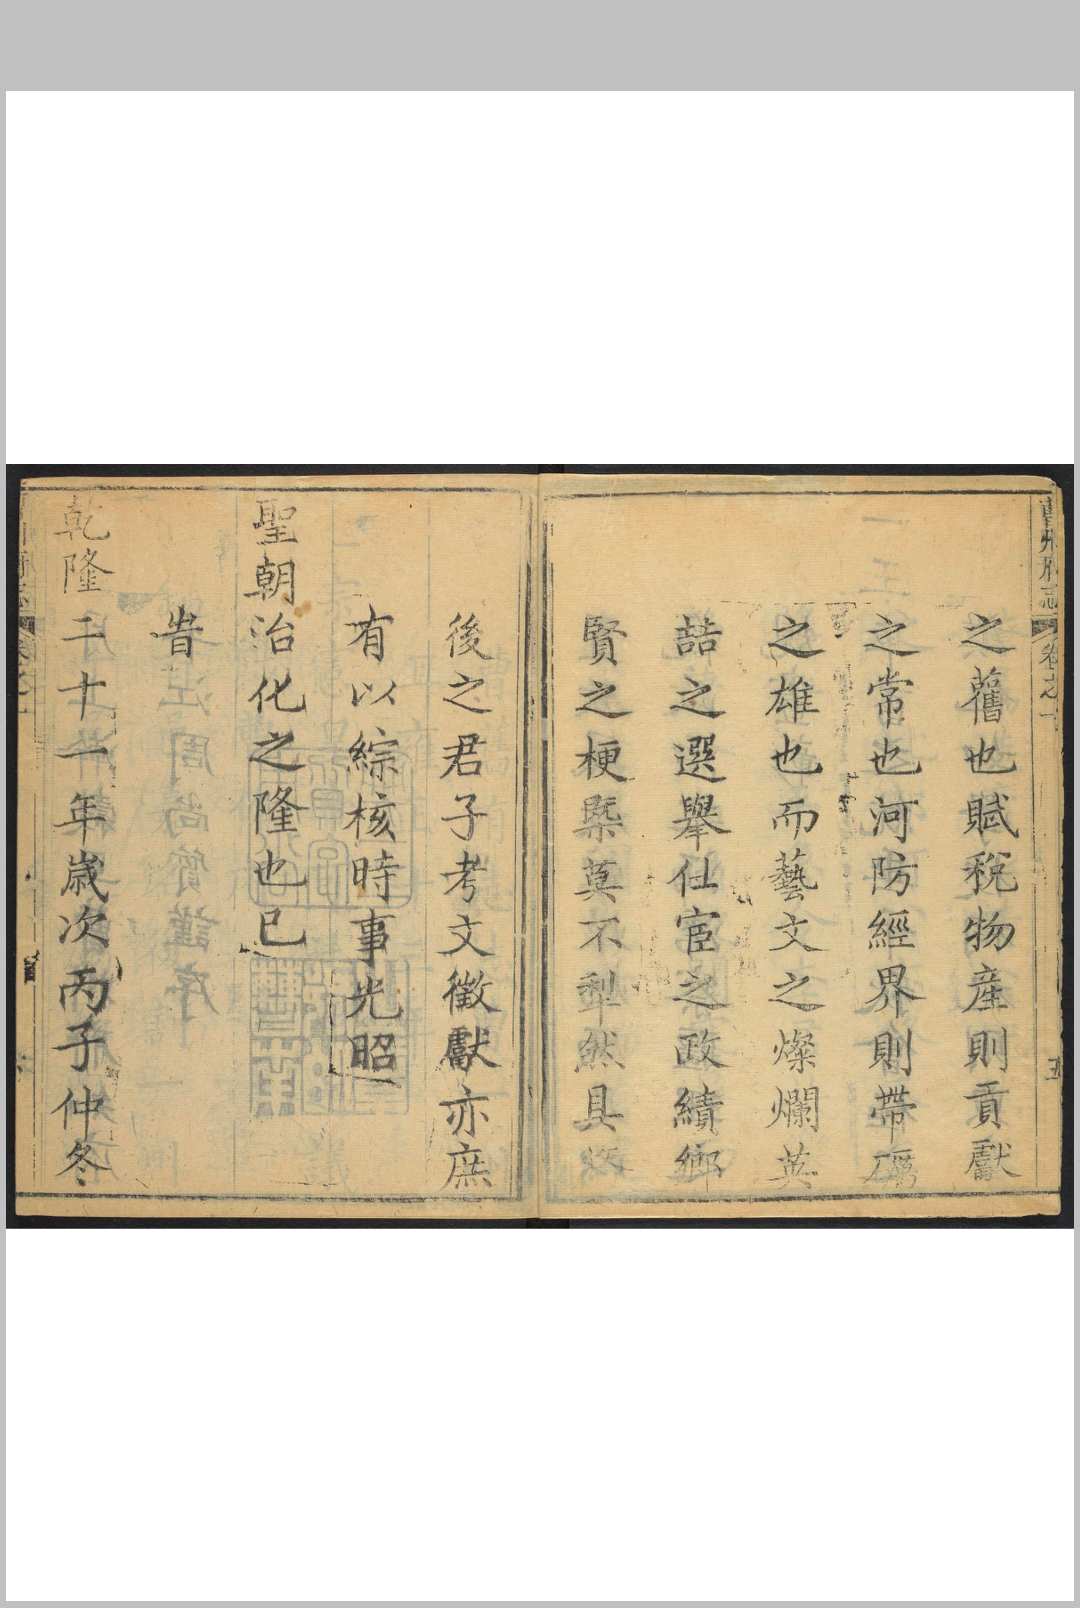 曹州府志 卷之一 五
之舊也賦稅物產則貢獻
之常也河防經界則帶礪
之雄也而藝文之燦爛英
喆之選舉仕宦之政績鄉
賢之梗槩莫不犁然具
後之君子考文徵獻亦庶
有以綜核時事光昭
聖朝治化之隆也已
旹
乾隆二十一年歲次丙子仲冬